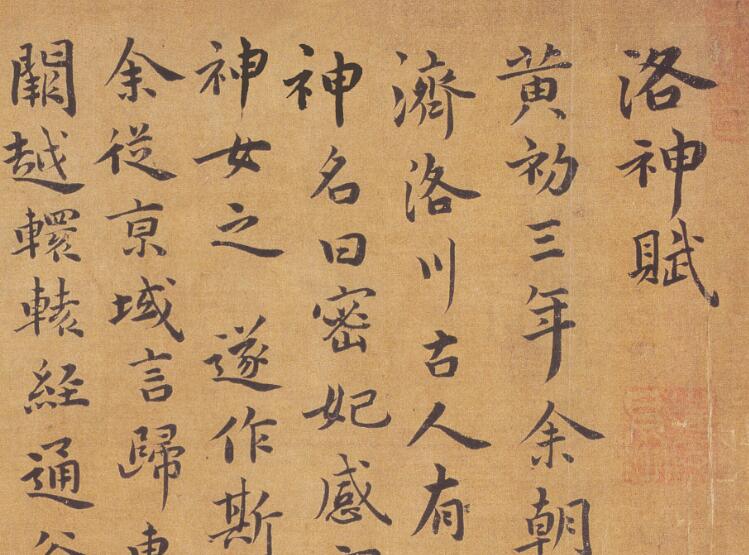 洛神賦
黄初三年余朝
濟洛川古人有
神名曰密妃感
神女之 遂作斯
余從亰域言歸
闕越轘轅経通